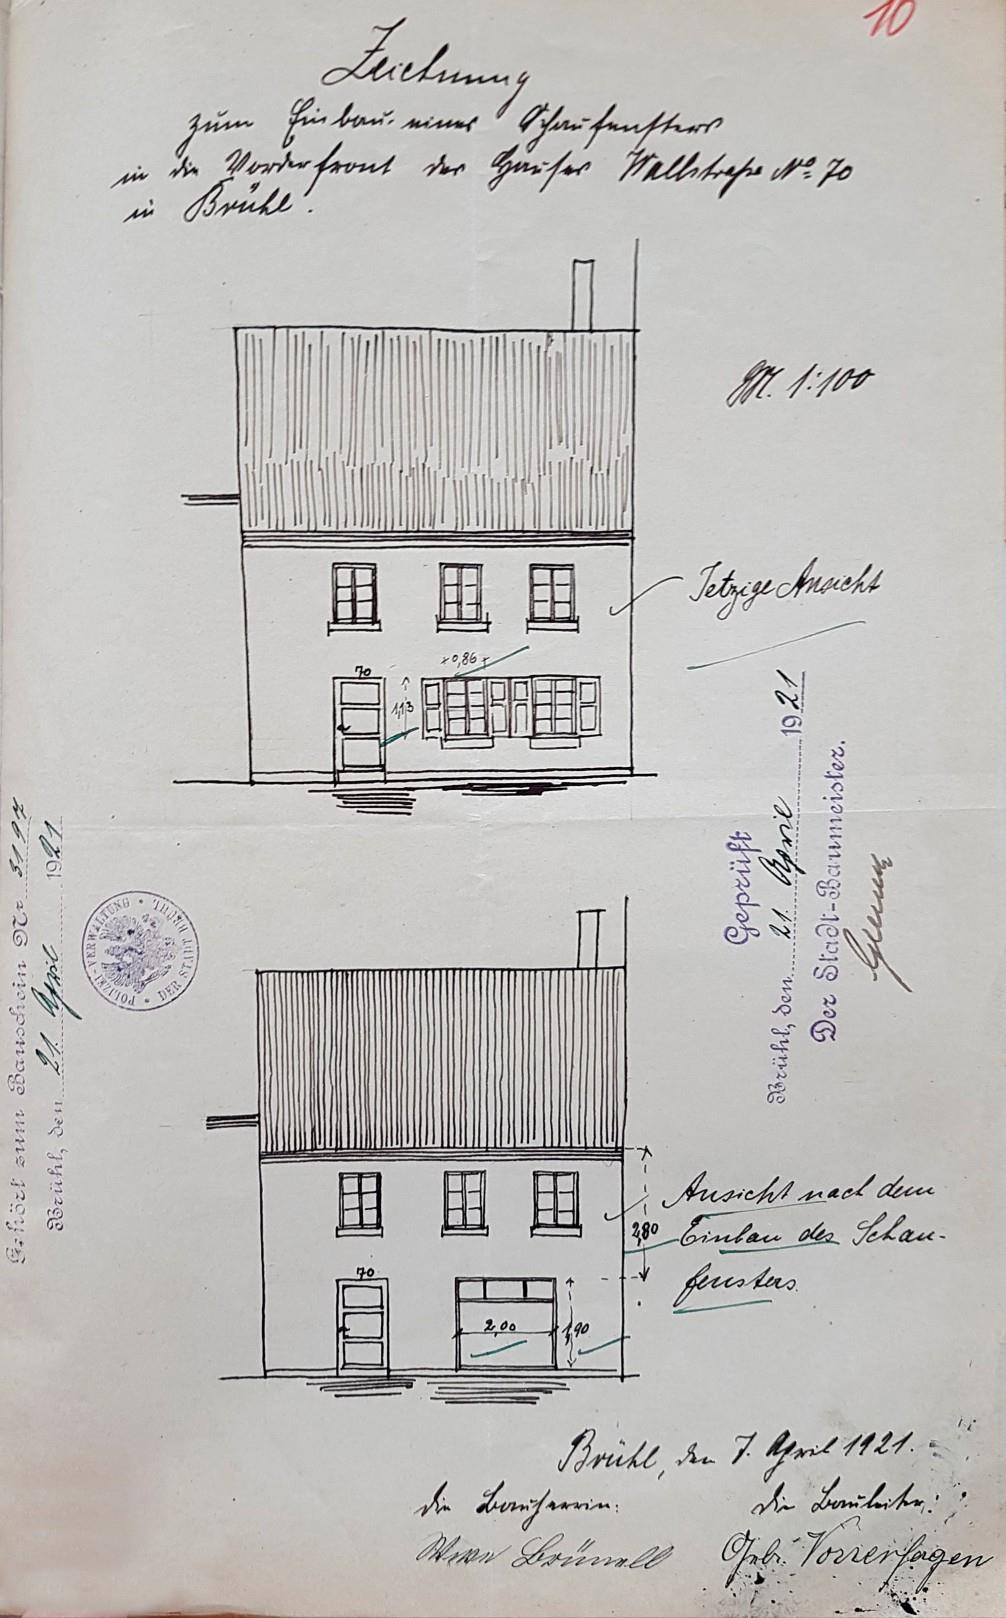 10
Zeichnung
zum Einbau eines Schaufensters
in die Vorderfront des Hauses Wallstraße No 70
in Brühl.
M. 1:100
Jetzige Ansicht
0,86
70
1,13
Geprüft
Brühl, den 21 April 1921
Der Stadt-Baumeister.
Gehört zum Bauschein Nr. 3197
Brühl, den 21. April 1921
POLIZEI-VERWALTUNG • DER STADT BRÜHL •
Ansicht nach dem
Einbau des Schau-
fensters.
2,80
70
2,00
1,90
Brühl, den 7. April 1921.
die Bauherrin:
die Bauleiter:
Wwe Brünell
Gebr. Vorrenhagen